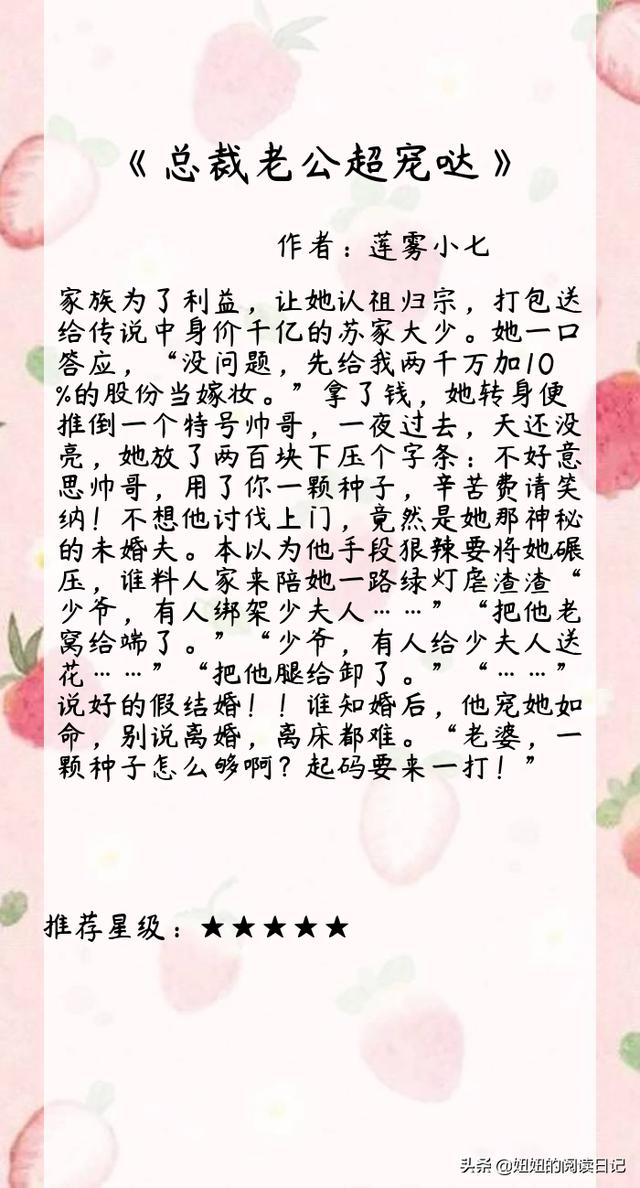 《总裁老公超宠哒》
作者：莲雾小七
家族为了利益，让她认祖归宗，打包送
给传说中身价千亿的苏家大少。她一口
答应，“没问题，先给我两千万加10
%的股份当嫁妆。”拿了钱，她转身便
推倒一个特号帅哥，一夜过去，天还没
亮，她放了两百块下压个字条：不好意
思帅哥，用了你一颗种子，辛苦费请笑
纳！不想他讨伐上门，竟然是她那神秘
的未婚夫。本以为他手段狠辣要将她碾
压，谁料人家来陪她一路绿灯虐渣渣“
少爷，有人绑架少夫人……”“把他老
窝给端了。”“少爷，有人给少夫人送
花……”“把他腿给卸了。”“……”
说好的假结婚！！谁知婚后，他宠她如
命，别说离婚，离床都难。“老婆，一
颗种子怎么够啊？起码要来一打！”
推荐星级：★★★★★
头条 @妞妞的阅读日记